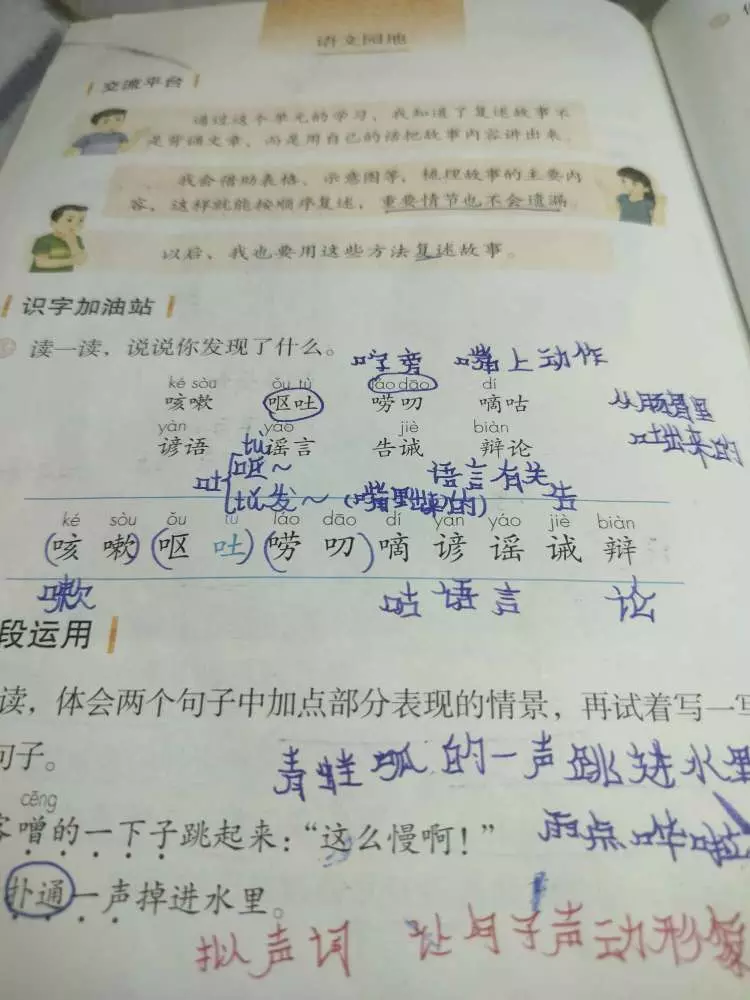 语文园地
交流平台
通过这个单元的学习，我知道了复述故事不
是背诵文章，而是用自己的话把故事内容讲出来。
我会借助表格、示意图等，梳理故事的主要内
容，这样就能按顺序复述，重要情节也不会遗漏。
以后，我也要用这些方法复述故事。
识字加油站
读一读，说说你发现了什么。
口字旁 嘴上动作
ké sòu ǒu tù láo dāo dí
咳嗽 呕吐 唠叨 嘀咕
从肠胃里
吐出来的
yàn yáo jiè biàn
谚语 谣言 告诫 辩论
tù 呕～
吐
tǔ 发～（嘴里出来的）
语言有关
告
ké sòu ǒu tù láo dāo dí yàn yáo jiè biàn
咳 嗽 呕 吐 唠 叨 嘀 谚 谣 诫 辩
嗽 咕 语 言 论
段运用
读，体会两个句子中加点部分表现的情景，再试着写一写
句子。
青蛙呱的一声跳进水里
cēng
客噌的一下子跳起来：“这么慢啊！”
雨点哗啦
扑通一声掉进水里。
拟声词 让句子声动形象